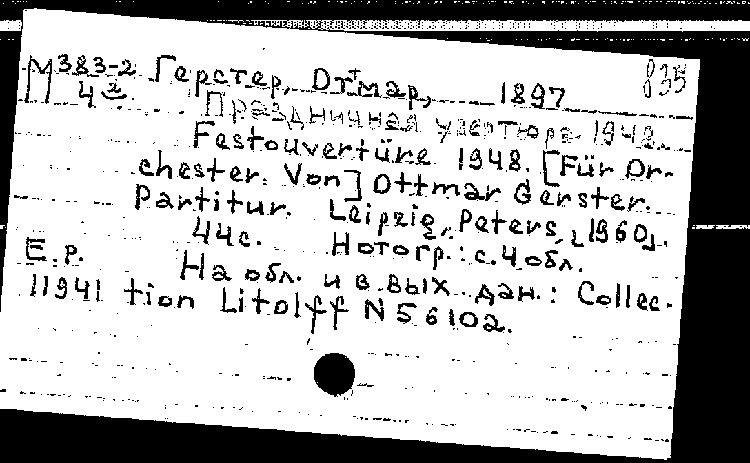 М 383-2 Герстер, Отмар, 1897 835
4
Праздничная увертюра 1948.
Festouvertüre 1948. [Für Or-
chester. Von] Ottmar Gerster.
Partitur. Leipzig, Peters, [1960].
44с. Нотогр.: с.4 обл.
Е.Р. На обл. и в вых. дан.: Collec-
11941 tion Litolff N 56102.